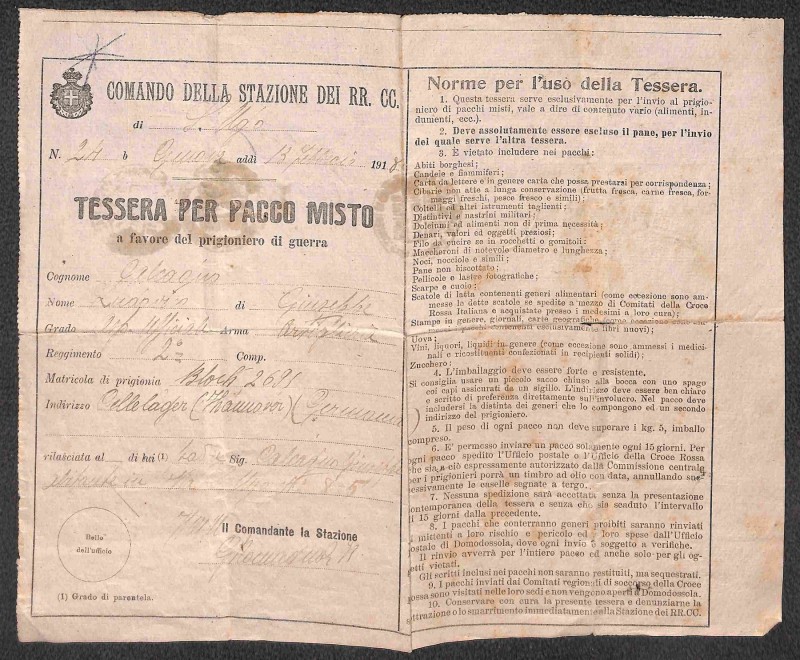 COMANDO DELLA STAZIONE DEI RR. CC.
di
N. 24 b Genova addì 13 Febbraio 1918
TESSERA PER PACCO MISTO
a favore del prigioniero di guerra
Cognome
Nome di Giuseppe
Grado Arma Artiglieria
Reggimento 2° Comp.
Matricola di prigionia Block 2691
Indirizzo Cellelager (Hannover) Germania
rilasciata al di lui (1) Sig.
Il Comandante la Stazione
Bollo
dell'ufficio
(1) Grado di parentela.
Norme per l'uso della Tessera.
1. Questa tessera serve esclusivamente per l'invio al prigio-
niero di pacchi misti, vale a dire di contenuto vario (alimenti, in-
dumenti, ecc.).
2. Deve assolutamente essere escluso il pane, per l'invio
del quale serve l'altra tessera.
3. È vietato includere nei pacchi:
Abiti borghesi;
Candele e fiammiferi;
Carta da lettere e in genere carta che possa prestarsi per corrispondenza;
Cibarie non atte a lunga conservazione (frutta fresca, carne fresca, for-
maggi freschi, pesce fresco e simili);
Coltelli ed altri istrumenti taglienti;
Distintivi e nastrini militari;
Dolciumi ed alimenti non di prima necessità;
Denari, valori ed oggetti preziosi;
Filo da cucire se in rocchetti o gomitoli;
Maccheroni di notevole diametro e lunghezza;
Noci, nocciole e simili;
Pane non biscottato;
Pellicole e lastre fotografiche;
Scarpe e cuoio;
Scatole di latta contenenti generi alimentari (come eccezione sono am-
messe le dette scatole se spedite a mezzo di Comitati della Croce
Rossa Italiana e acquistate presso i medesimi a loro cura);
Stampe in genere, giornali, carte geografiche
pacchi contenenti esclusivamente libri nuovi);
Uova;
Vini, liquori, liquidi in genere (come eccezione sono ammessi i medici-
nali e ricostituenti confezionati in recipienti solidi);
Zucchero;
4. L'imballaggio deve essere forte e resistente.
Si consiglia usare un piccolo sacco chiuso alla bocca con uno spago
coi capi assicurati da un sigillo. L'indirizzo deve essere ben chiaro
e scritto di preferenza direttamente sull'involucro. Nel pacco deve
includersi la distinta dei generi che lo compongono ed un secondo
indirizzo del prigioniero.
5. Il peso di ogni pacco non deve superare i kg. 5, imballo
compreso.
6. E' permesso inviare un pacco solamente ogni 15 giorni. Per
ogni pacco spedito l'Ufficio postale o l'Ufficio della Croce Rossa
che sia a ciò espressamente autorizzato dalla Commissione centrale
per i prigionieri porrà un timbro ad olio con data, annullando suc-
cessivamente le caselle segnate a tergo.
7. Nessuna spedizione sarà accettata senza la presentazione
contemporanea della tessera e senza che sia scaduto l'intervallo
di 15 giorni dalla precedente.
8. I pacchi che conterranno generi proibiti saranno rinviati
ai mittenti a loro rischio e pericolo ed a loro spese dall'Ufficio
postale di Domodossola, dove ogni invio è soggetto a verifiche.
Il rinvio avverrà per l'intiero pacco ed anche solo per gli og-
getti vietati.
Gli scritti inclusi nei pacchi non saranno restituiti, ma sequestrati.
9. I pacchi inviati dai Comitati regionali di soccorso della Croce
Rossa sono visitati nelle loro sedi e non vengono aperti a Domodossola.
10. Conservare con cura la presente tessera e denunziarne la
sottrazione o lo smarrimento immediatamente alla Stazione dei RR. CC.